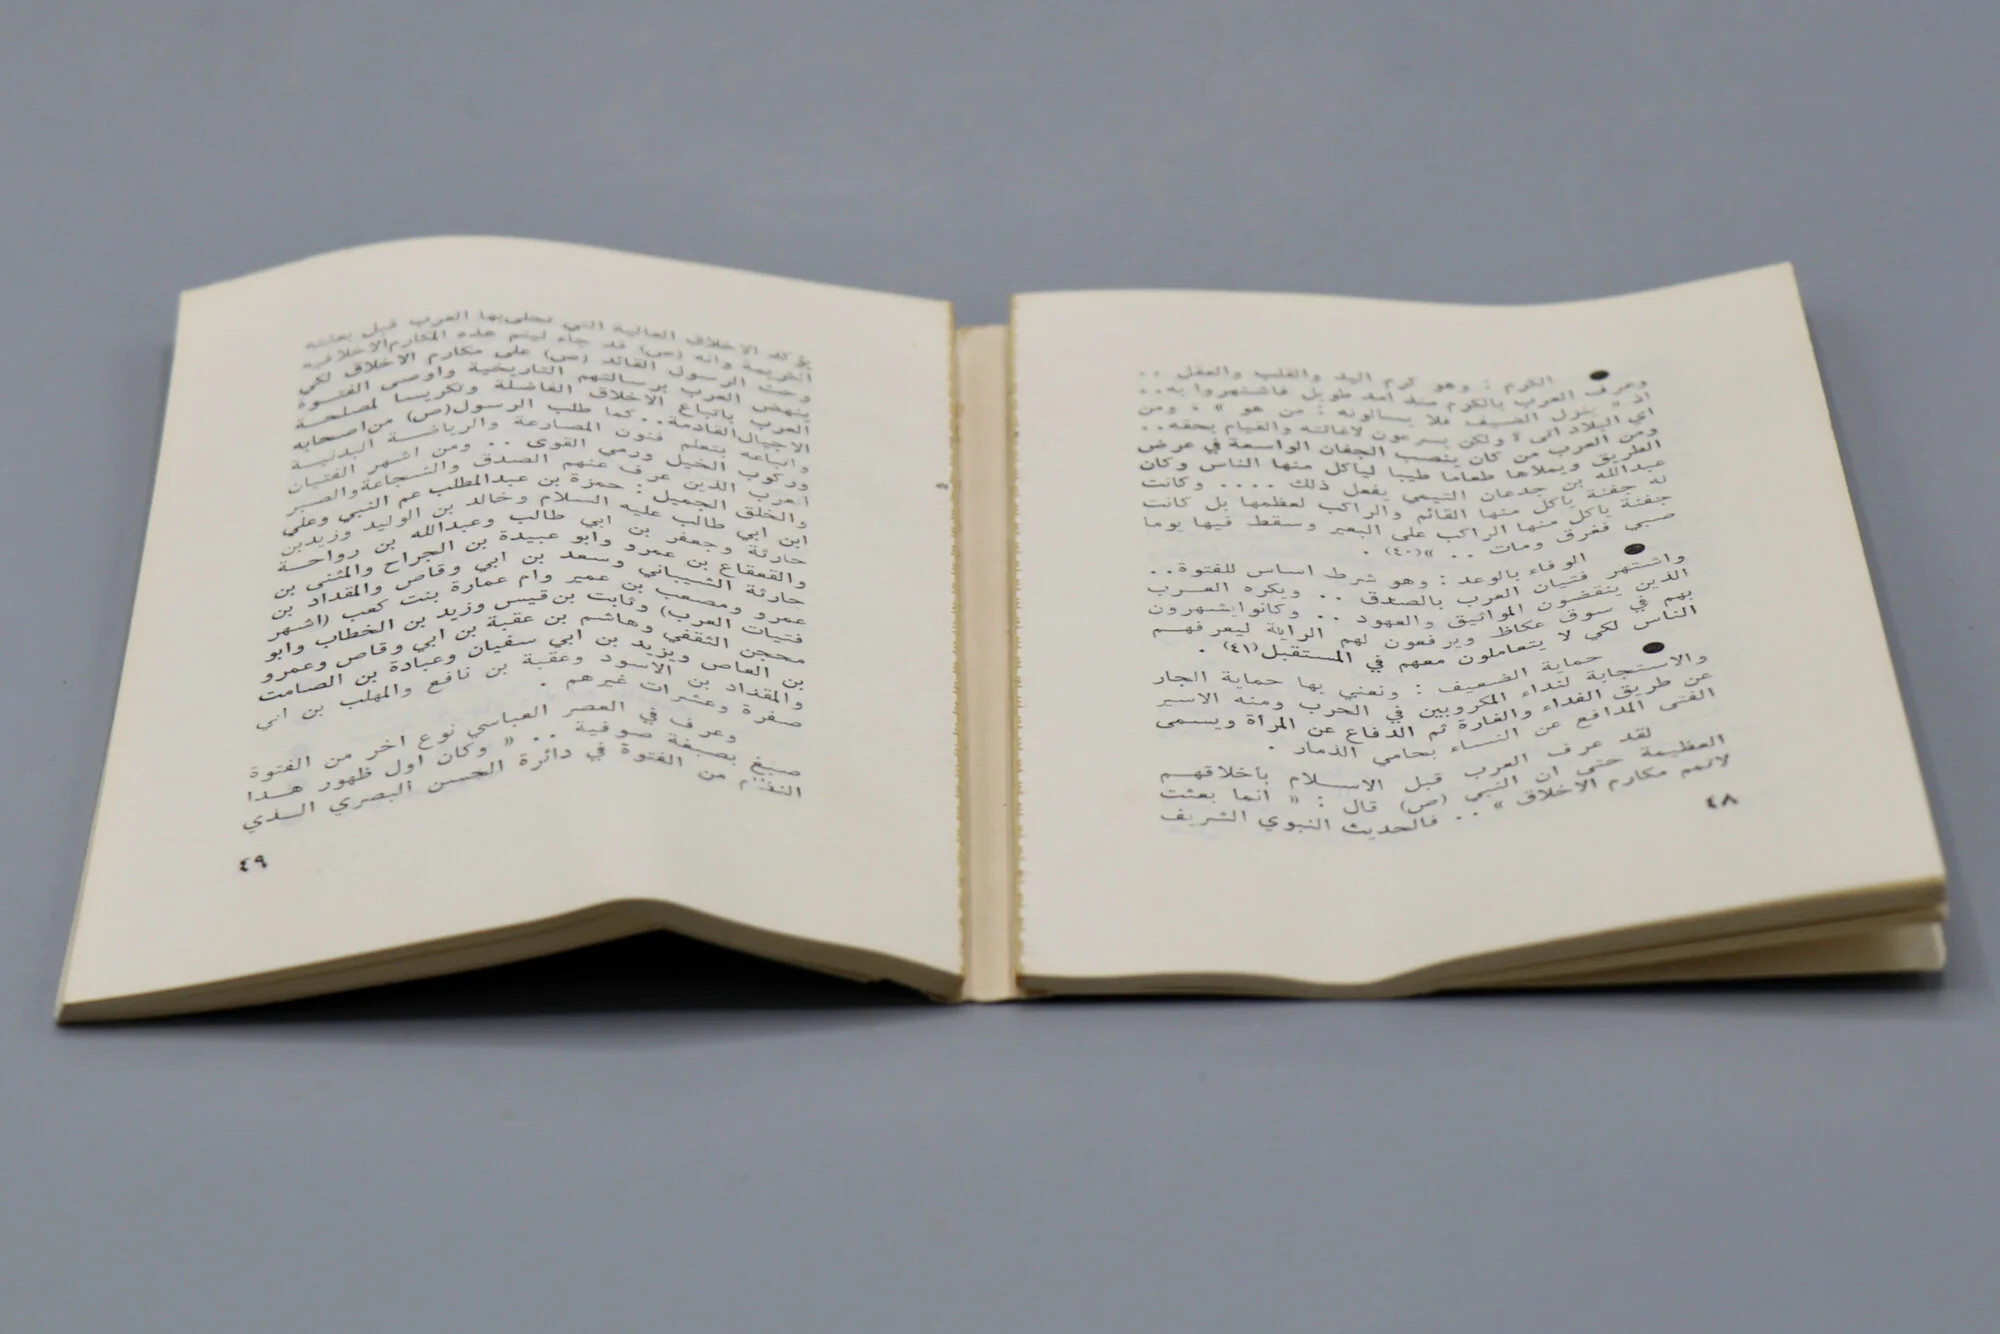 ● الكرم : وهو كرم اليد والقلب والعقل ..
وعرف العرب بالكرم منذ امد طويل فاشتهروا به ..
اذ « ينزل الضيف فلا يسالونه : من هو » ، ومن
اي البلاد اتى ؟ ولكن يسرعون لاغاثته والقيام بحقه ..
ومن العرب من كان ينصب الجفان الواسعة في عرض
الطريق ويملاها طعاما طيبا لياكل منها الناس وكان
عبدالله بن جدعان التيمي يفعل ذلك .... وكانت
له جفنة ياكل منها القائم والراكب لعظمها بل كانت
جفنة ياكل منها الراكب على البعير وسقط فيها يوما
صبي ففرق ومات .. »(٤٠) .
● الوفاء بالوعد : وهو شرط اساس للفتوة ..
واشتهر فتيان العرب بالصدق .. ويكره العرب
الذين ينقضون المواثيق والعهود .. وكانوا يشهرون
بهم في سوق عكاظ ويرفعون لهم الراية ليعرفهم
الناس لكي لا يتعاملون معهم في المستقبل(٤١) .
● حماية الضعيف : ونعني بها حماية الجار
والاستجابة لنداء المكروبين في الحرب ومنه الاسير
عن طريق الفداء والغارة ثم الدفاع عن المراة ويسمى
الفتى المدافع عن النساء بحامي الذمار .
لقد عرف العرب قبل الاسلام بأخلاقهم
العظيمة حتى ان النبي (ص) قال : « انما بعثت
لاتمم مكارم الاخلاق » .. فالحديث النبوي الشريف
٤٨
يؤكد الاخلاق العالية التي تحلى بها العرب قبل بعثته
الكريمة وانه (ص) قد جاء ليتم هذه المكارم الاخلاقية
وحث الرسول القائد (ص) على مكارم الاخلاق لكي
ينهض العرب برسالتهم التاريخية واوصى الفتوة
العرب باتباع الاخلاق الفاضلة وتكريسا لمصلحة
الاجيال القادمة .. كما طلب الرسول(ص) من اصحابه
واتباعه بتعلم فنون المصارعة والرياضة البدنية
وركوب الخيل ورمي القوى .. ومن اشهر الفتيان
العرب الذين عرف عنهم الصدق والشجاعة والصبر
والخلق الجميل : حمزة بن عبدالمطلب عم النبي وعلي
ابن ابي طالب عليه السلام وخالد بن الوليد وزيد بن
حارثة وجعفر بن ابي طالب وعبدالله بن رواحة
والقعقاع بن عمرو وابو عبيدة بن الجراح والمثنى بن
حارثة الشيباني وسعد بن ابي وقاص والمقداد بن
عمرو ومصعب بن عمير وام عمارة بنت كعب (اشهر
فتيات العرب) وثابت بن قيس وزيد بن الخطاب وابو
محجن الثقفي وهاشم بن عقبة بن ابي وقاص وعمرو
بن العاص ويزيد بن ابي سفيان وعبادة بن الصامت
والمقداد بن الاسود وعقبة بن نافع والمهلب بن ابي
صفرة وعشرات غيرهم .
وعرف في العصر العباسي نوع اخر من الفتوة
صبغ بصبغة صوفية .. « وكان اول ظهور هذا
النغم من الفتوة في دائرة الحسن البصري الذي
٤٩